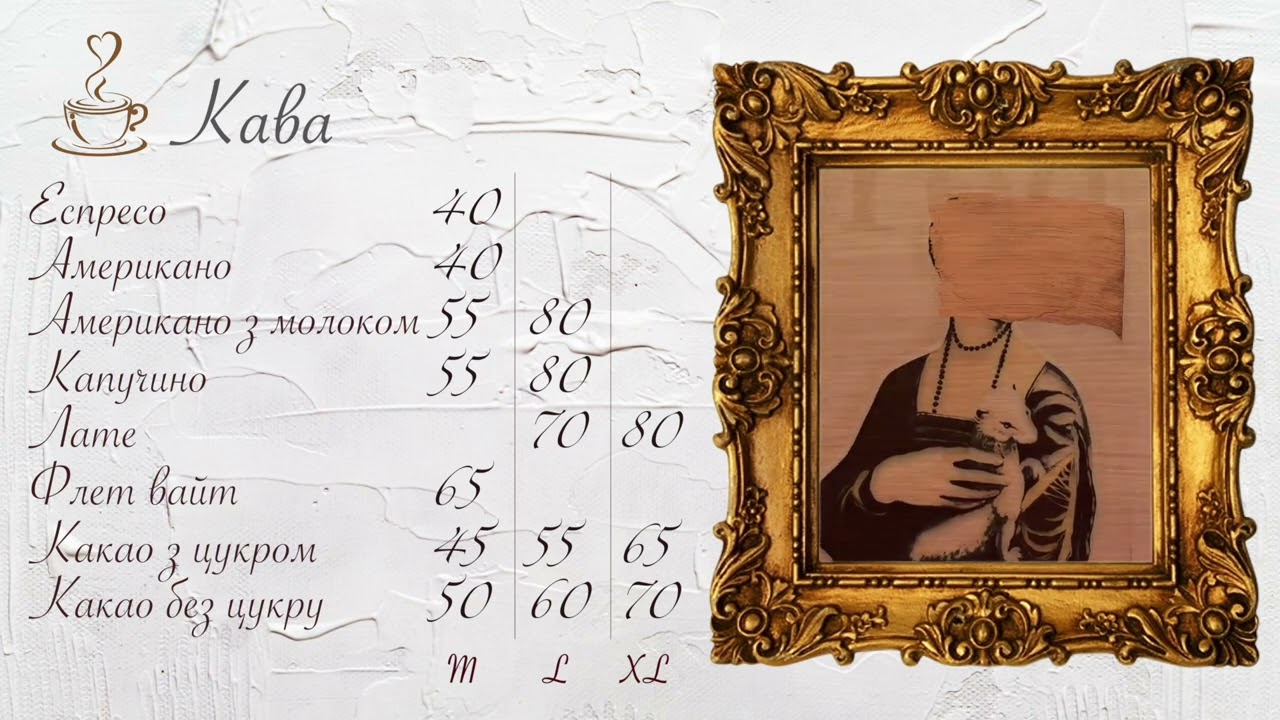 Кава
Еспресо 40
Американо 40
Американо з молоком 55 80
Капучино 55 80
Лате 70 80
Флет вайт 65
Какао з цукром 45 55 65
Какао без цукру 50 60 70
M L XL